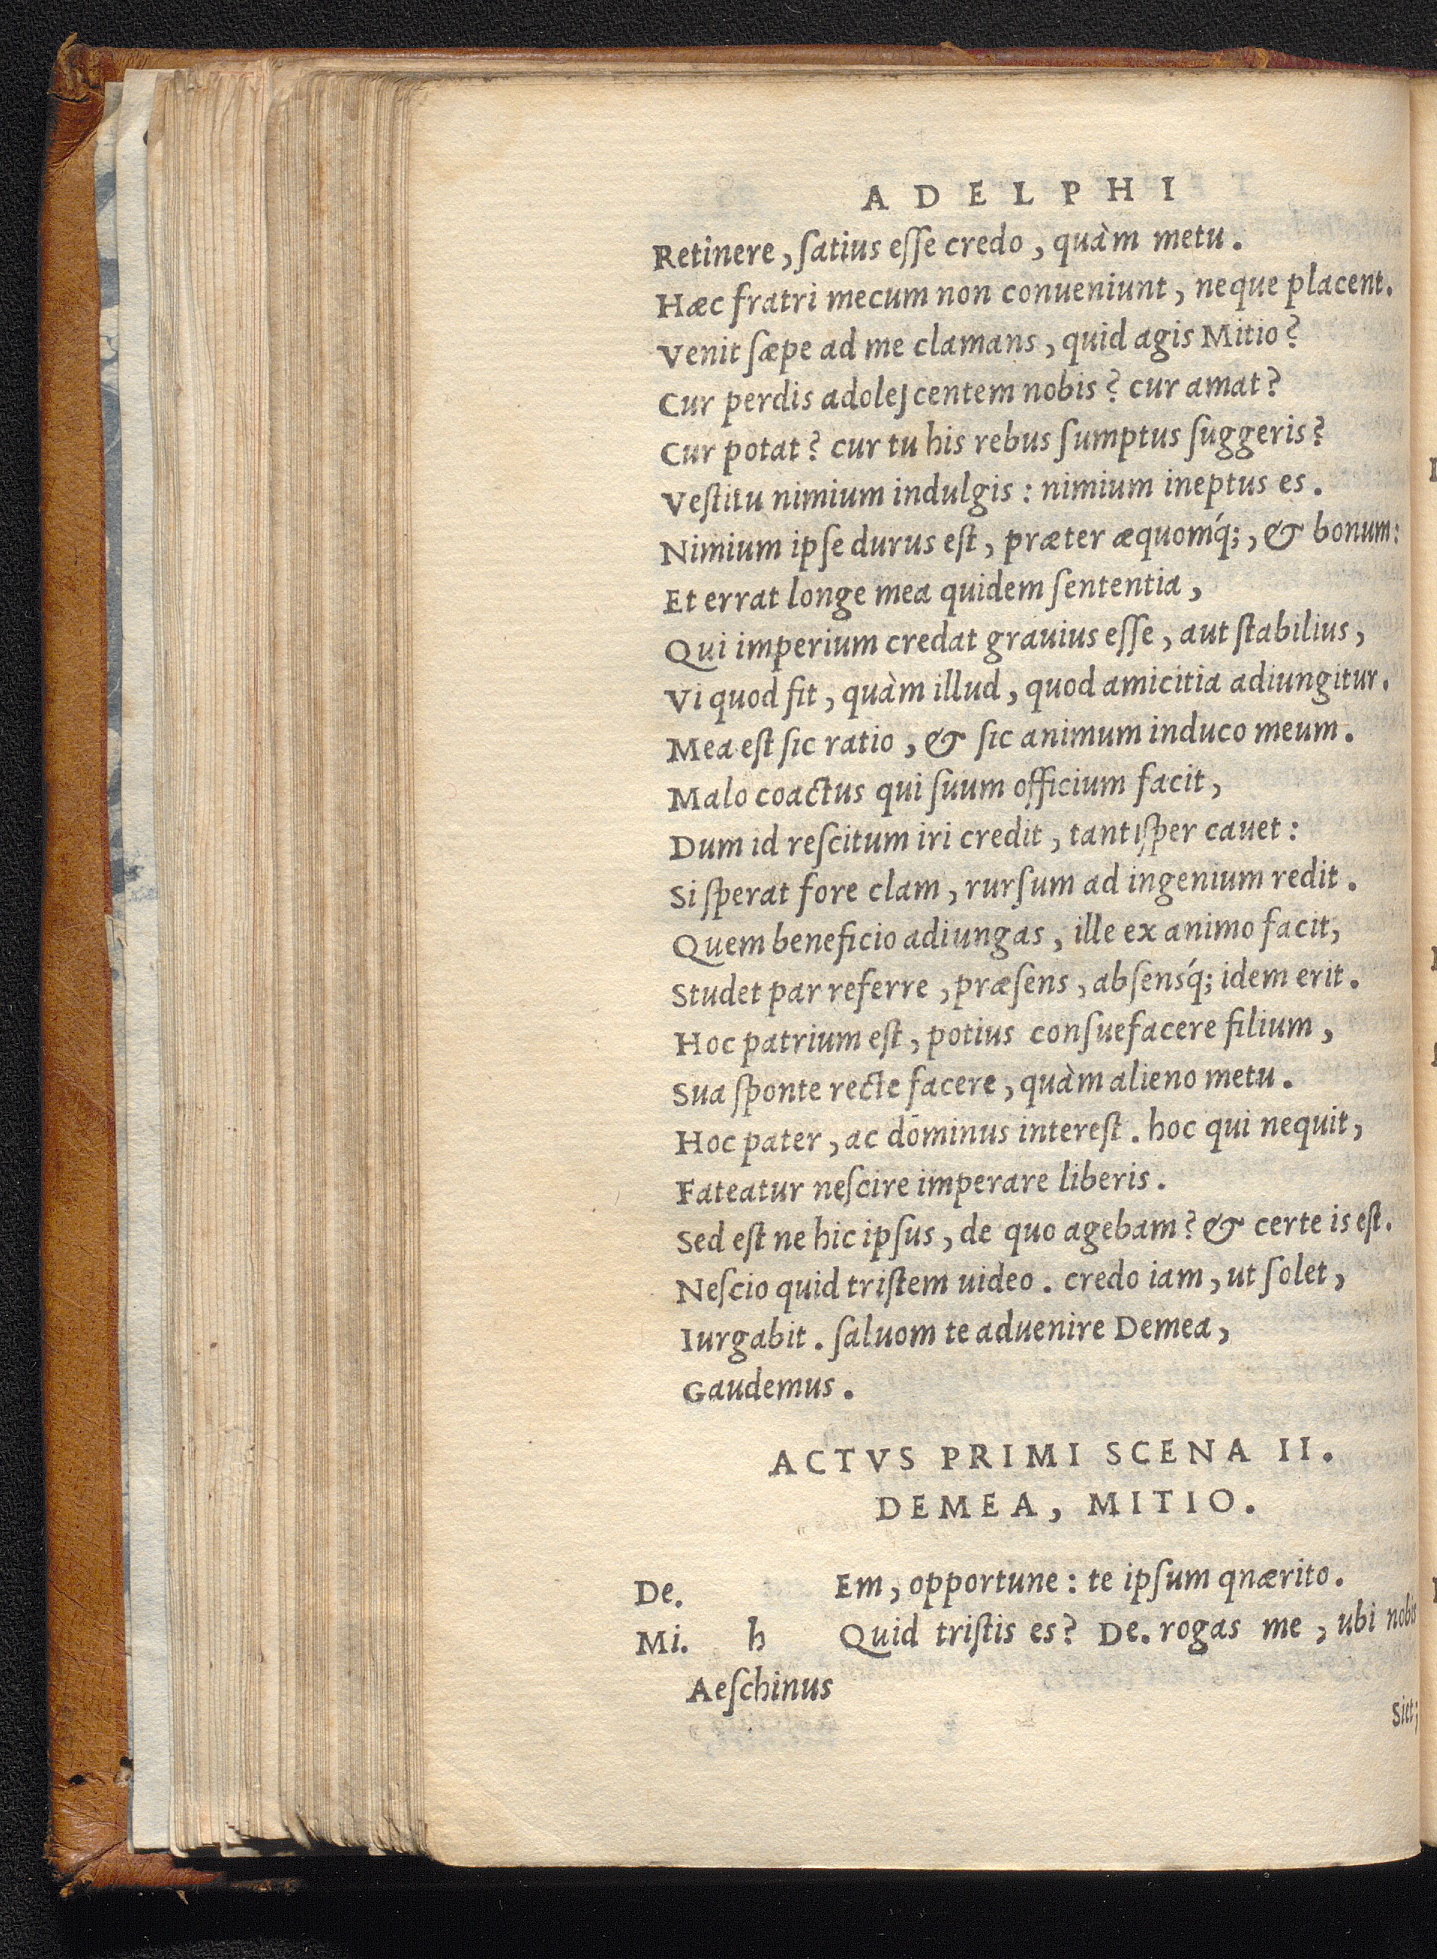 ADELPHI
Retinere, ſatius eſſe credo, quàm metu.
Hæc fratri mecum non conueniunt, neque placent.
Venit ſæpe ad me clamans, quid agis Mitio?
Cur perdis adoleſcentem nobis? cur amat?
Cur potat? cur tu his rebus ſumptus ſuggeris?
Veſtitu nimium indulgis: nimium ineptus es.
Nimium ipſe durus eſt, præter æquomq́;, & bonum:
Et errat longe mea quidem ſententia,
Qui imperium credat grauius eſſe, aut ſtabilius,
Vi quod fit, quàm illud, quod amicitia adiungitur.
Mea eſt ſic ratio, & ſic animum induco meum.
Malo coactus qui ſuum officium facit,
Dum id reſcitum iri credit, tantiſper cauet:
Si ſperat fore clam, rurſum ad ingenium redit.
Quem beneficio adiungas, ille ex animo facit,
Studet par referre, præſens, abſensq́; idem erit.
Hoc patrium eſt, potius conſuefacere filium,
Sua ſponte recte facere, quàm alieno metu.
Hoc pater, ac dominus intereſt. hoc qui nequit,
Fateatur neſcire imperare liberis.
Sed eſt ne hic ipſus, de quo agebam? & certe is eſt.
Neſcio quid triſtem uideo. credo iam, ut ſolet,
Iurgabit. ſaluom te aduenire Demea,
Gaudemus.
ACTVS PRIMI SCENA II.
DEMEA, MITIO.
De. Em, opportune: te ipſum qnærito.
Mi. h Quid triſtis es? De. rogas me, ubi nobis
Aeſchinus
Siet;